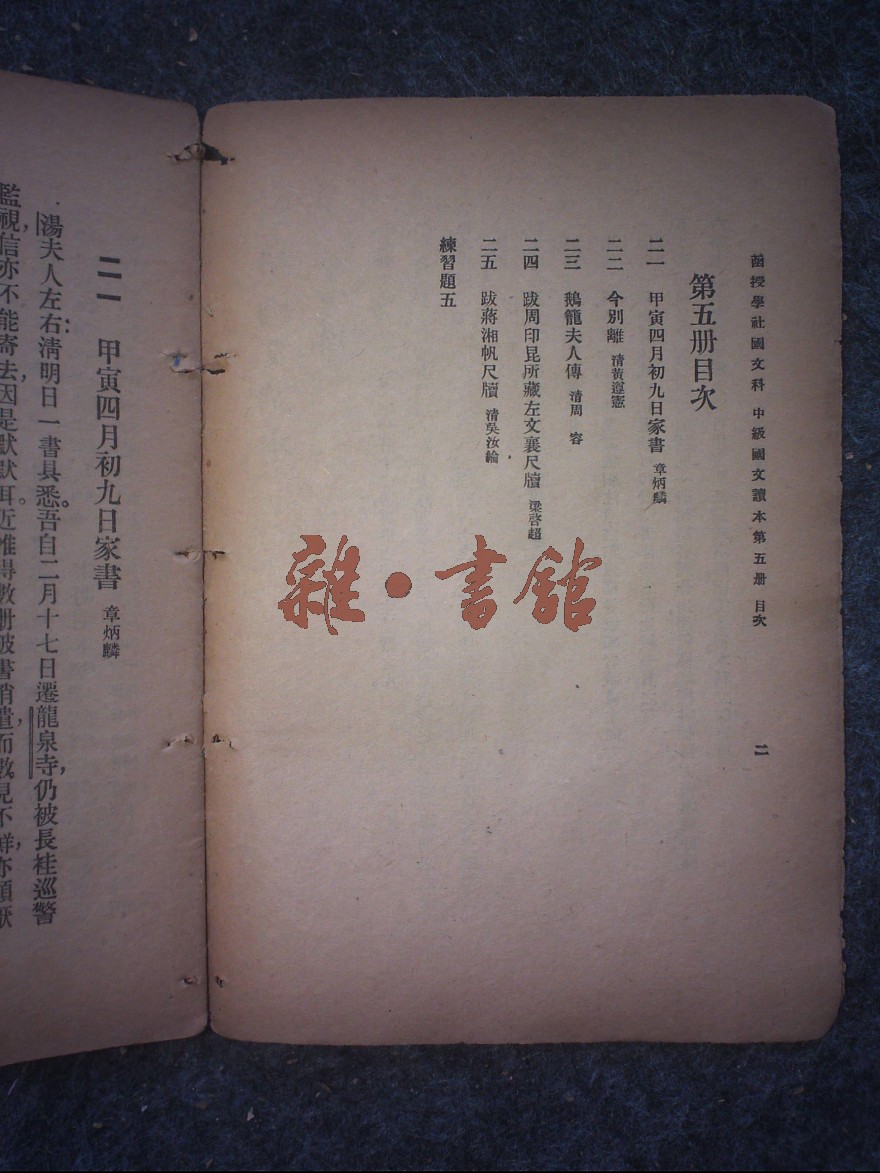 函授學社國文科 中級國文讀本第五册 目次 二
第五册目次
二一 甲寅四月初九日家書 章炳麟
二二 今別離 清黃遵憲
二三 鵝籠夫人傳 清周容
二四 跋周印昆所藏左文襄尺牘 梁啓超
二五 跋蔣湘帆尺牘 清吳汝綸
練習題五
二一 甲寅四月初九日家書 章炳麟
湯夫人左右:清明日一書具悉。吾自二月十七日遷龍泉寺,仍被長袿巡警
監視,信亦不能寄去,因是默默耳。近惟得數册破書消遣,而數見不鮮,亦頗厭
雜·書館